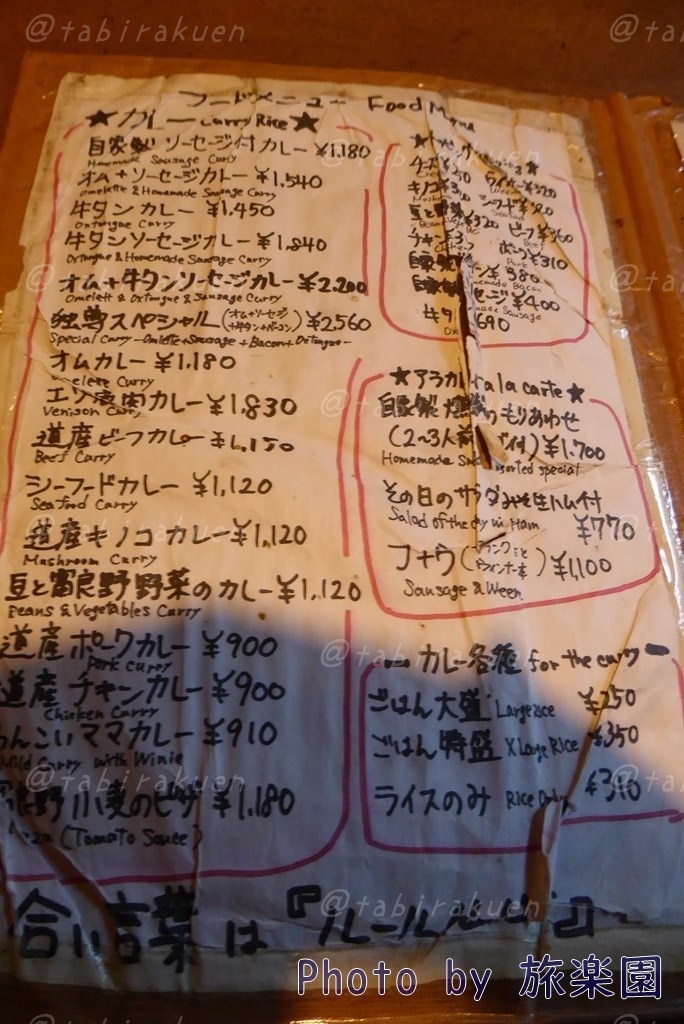 @tabirakuen
フードメニュー Food Menu
★カレー Curry Rice★
自家製ソーセージ付カレー ¥1,180
Homemade Sausage Curry
オム+ソーセージカレー ¥1,540
Omelette & Homemade Sausage Curry
牛タンカレー ¥1,450
Oxtongue Curry
牛タンソーセージカレー ¥1,840
Oxtongue & Homemade Sausage Curry
オム+牛タンソーセージカレー ¥2,200
Omelett & OxTongue & Sausage Curry
独尊スペシャル(オム+ソーセージ+牛タン+ベーコン) ¥2,560
Special Curry -Omlette+Sausage+Bacon+OxTongue-
オムカレー ¥1,180
Omelete Curry
エゾ鹿肉カレー ¥1,830
Venison Curry
道産ビーフカレー
Beef Carry
シーフードカレー ¥1,120
Seafood Curry
道産キノコカレー ¥1,120
Mushroom Curry
豆と富良野野菜のカレー ¥1,120
Beans & Vegetables Carry
道産ポークカレー ¥900
Pork curry
道産チキンカレー ¥900
Chicken Carry
カレー ¥910
Mild Carry with
富良野小麦のピザ ¥1,180
(Tomato Sauce)
チーズ ウインナー
キノコ シーフード
豆と野菜 ¥320 ビーフ ¥360
チキン ポーク ¥310
自家製 380
自家製 セージ ¥400
牛タ 690
★アラカルト a la carte★
自家製 燻製のもりあわせ
(2~3人前 付) ¥1,700
Homemade special
その日のサラダみそ生ハム付
Salad of the day w/ Ham ¥770
フナウ(フランクと ウィンナー ) ¥1,100
Sausage & Ween
カレー各種 for the curry
ごはん大盛 Large rice ¥250
ごはん特盛 X Large Rice ¥350
ライスのみ Rice Only
合い言葉は『ルール
Photo by 旅楽園